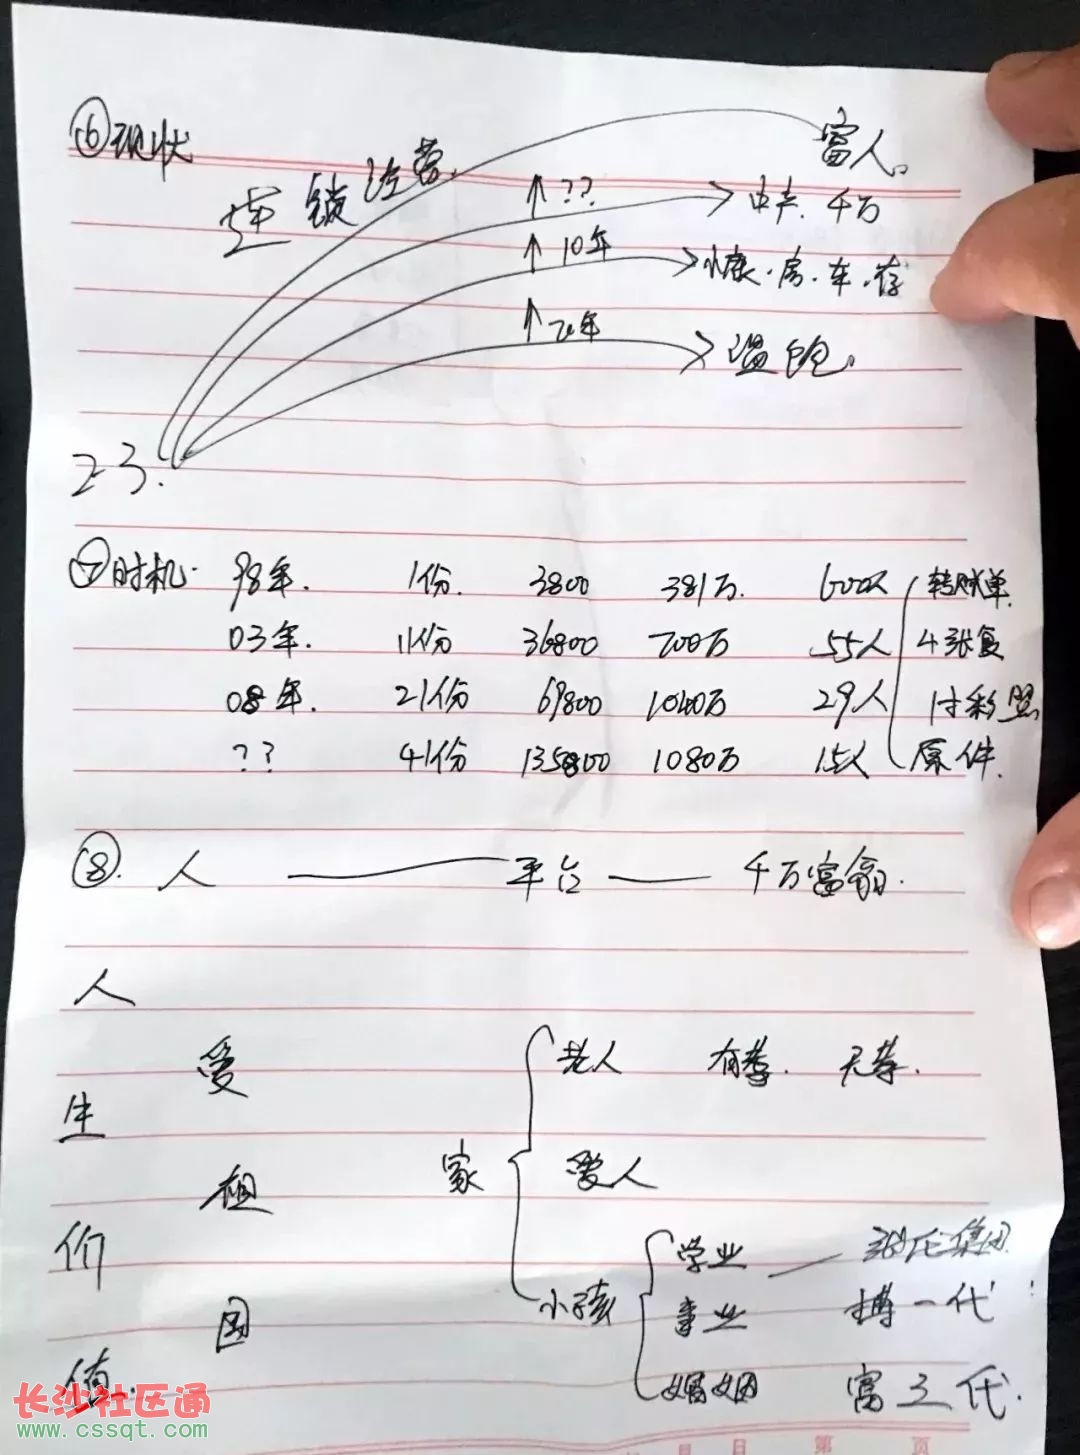 ⑥现状
富人。
连锁经营.
↑??
中产.千万
↑10年
小康.房.车.存
↑20年
温饱。
2-3.
⑦时机. 98年. 1份. 3800 381万. 600人 转账单.
03年. 11份 36800 700万 55人 4张复
08年. 21份 69800 1040万 29人
?? 41份 135800 1080万 15人 原件.
⑧. 人 平台 千万富翁.
人生价值.
爱祖国
家
老人 有尊. 无尊.
爱人
小孩
学业
事业 搏一代
婚姻 富三代.
长沙社区通
www.cssqt.com
月 日 第 页